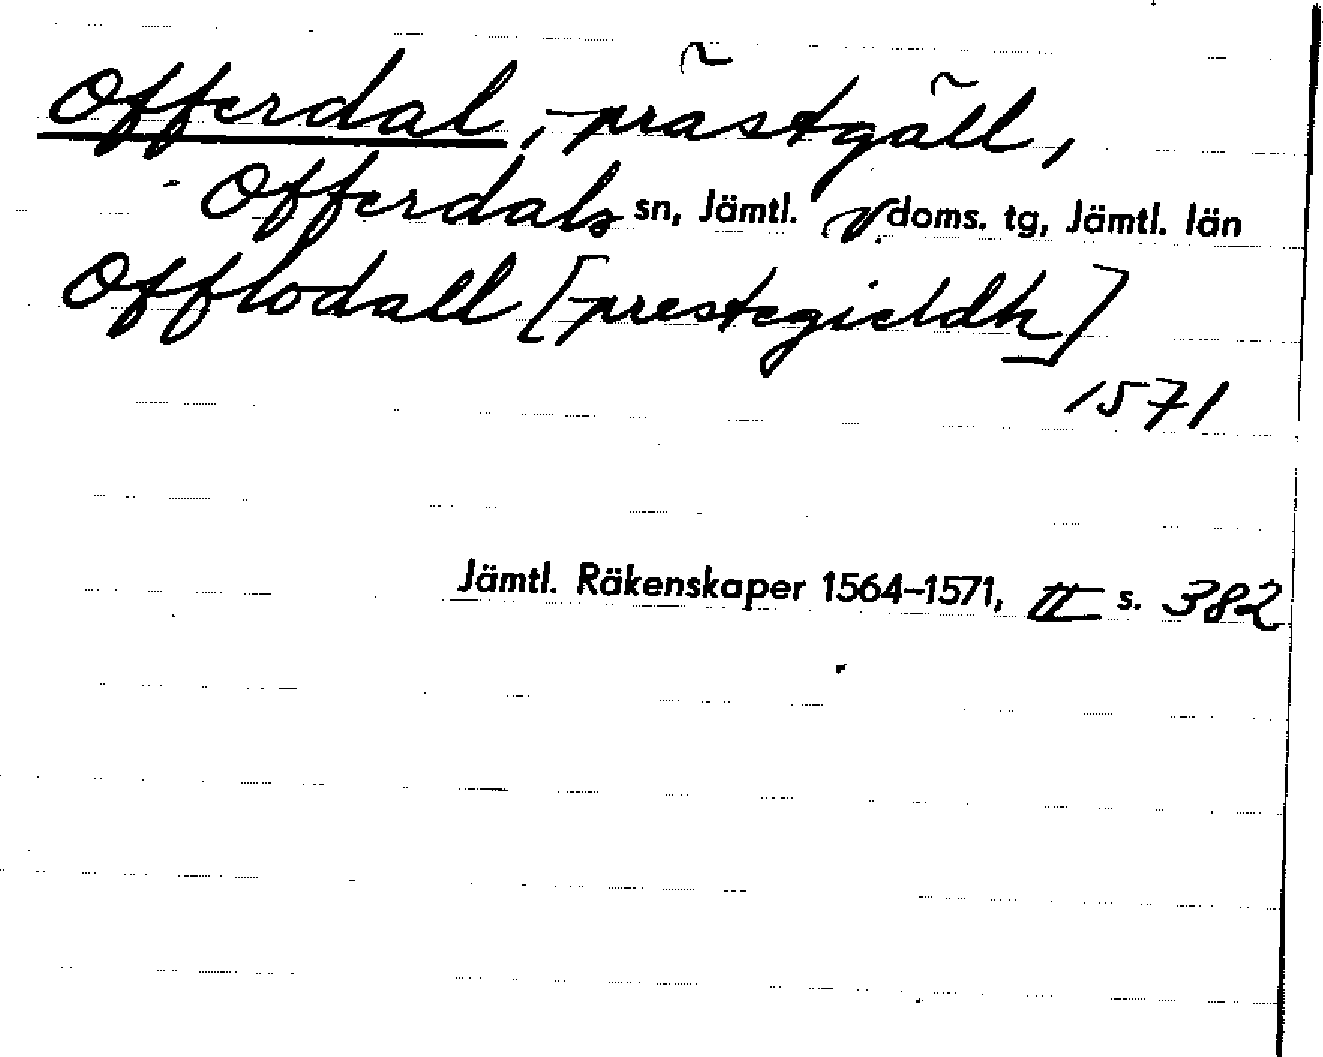 Offerdal, prästgäll,
Offerdals sn, Jämtl. v doms. tg, Jämtl. län
Offlodall [prestegieldh]
1571
Jämtl. Räkenskaper 1564–1571, II s. 382